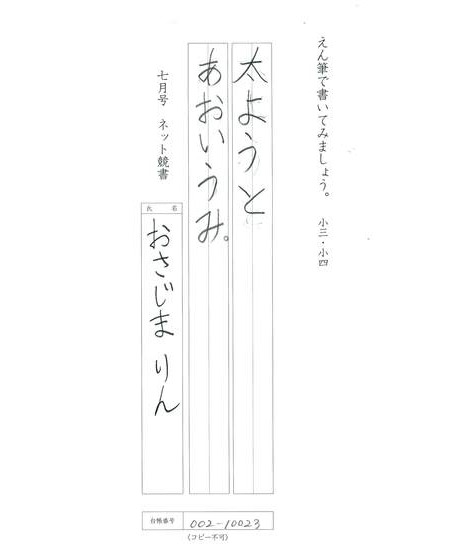 えん筆で書いてみましょう。 小三・小四
太ようと
あおいうみ。
七月号 ネット競書
氏名
おさじま りん
台帳番号 002-10023
(コピー不可)